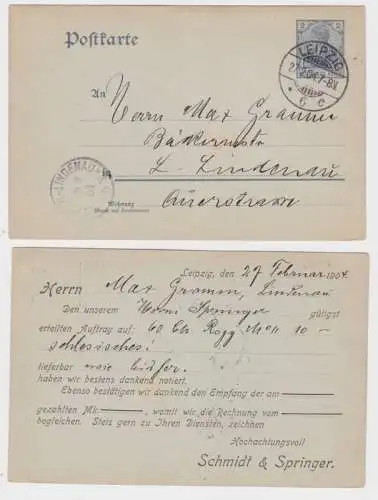 Postkarte
2
LEIPZIG
6 c
An
Herrn Max Gramm
Bäckermstr.
L. Lindenau
Querstrasse
LINDENAU
Wohnung
Leipzig, den 27 Februar 1904.
Herrn Max Gramm, Lindenau
Den unserem Herrn Springer gütigst
erteilten Auftrag auf: 60 Ctr. Rogg
schlesisches!
lieferbar
haben wir bestens dankend notiert.
Ebenso bestätigen wir dankend den Empfang der am
gezahlten Mk. , womit wir die Rechnung vom
begleichen. Stets gern zu Ihren Diensten, zeichnen
Hochachtungsvoll
Schmidt & Springer.